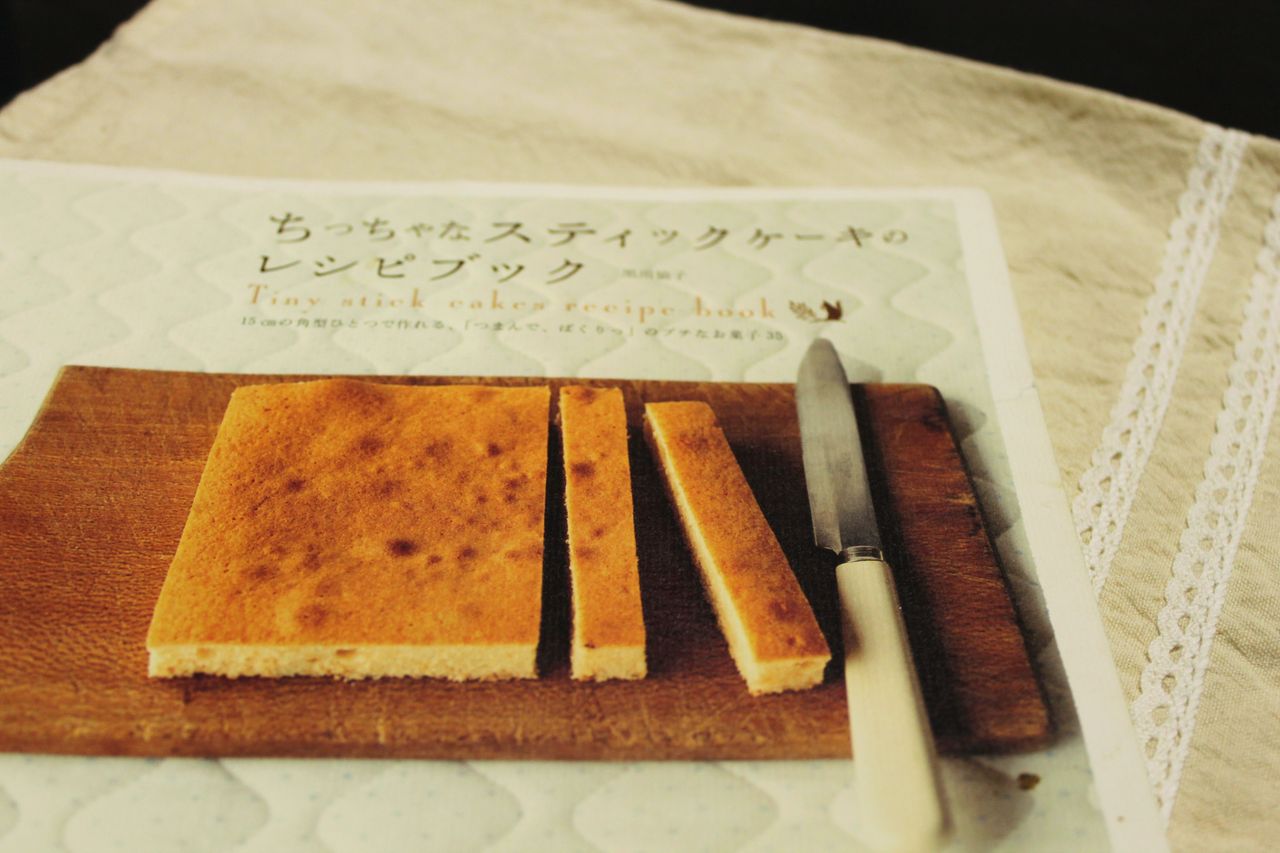 ちっちゃなスティックケーキの
レシピブック
Tiny stick cakes recipe book
15㎝の角型ひとつで作れる、「つまんで、ぱくりっ」のプチなお菓子35